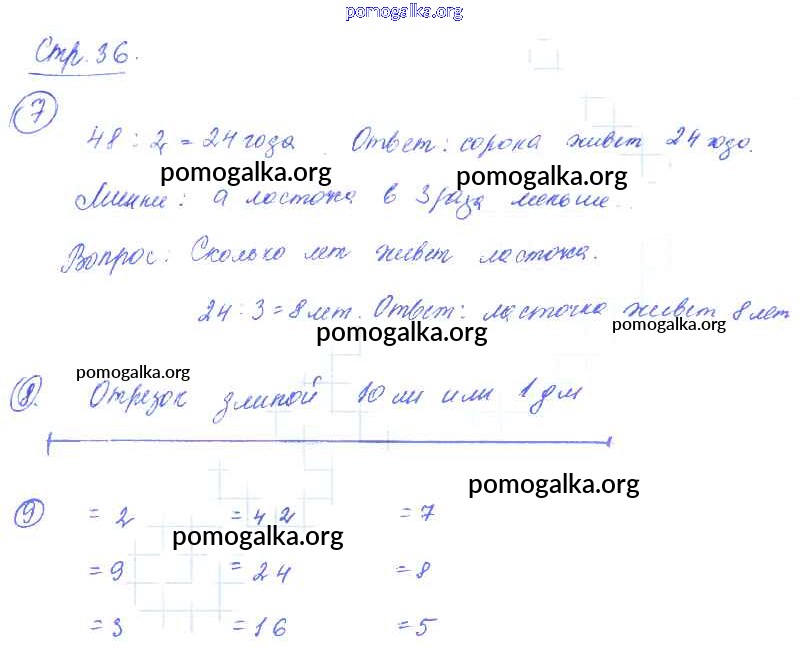 pomogalka.org
Стр. 36.
7
48 : 2 = 24 года. Ответ: сорока живет 24 года.
pomogalka.org pomogalka.org
Лишнее: а ласточка в 3 раза меньше.
Вопрос: Сколько лет живет ласточка.
24 : 3 = 8 лет. Ответ: ласточка живет 8 лет
pomogalka.org pomogalka.org
pomogalka.org
8. Отрезок длиной 10 см или 1 дм
pomogalka.org
9 = 2 = 42 = 7
pomogalka.org
= 9 = 24 = 8
= 3 = 16 = 5